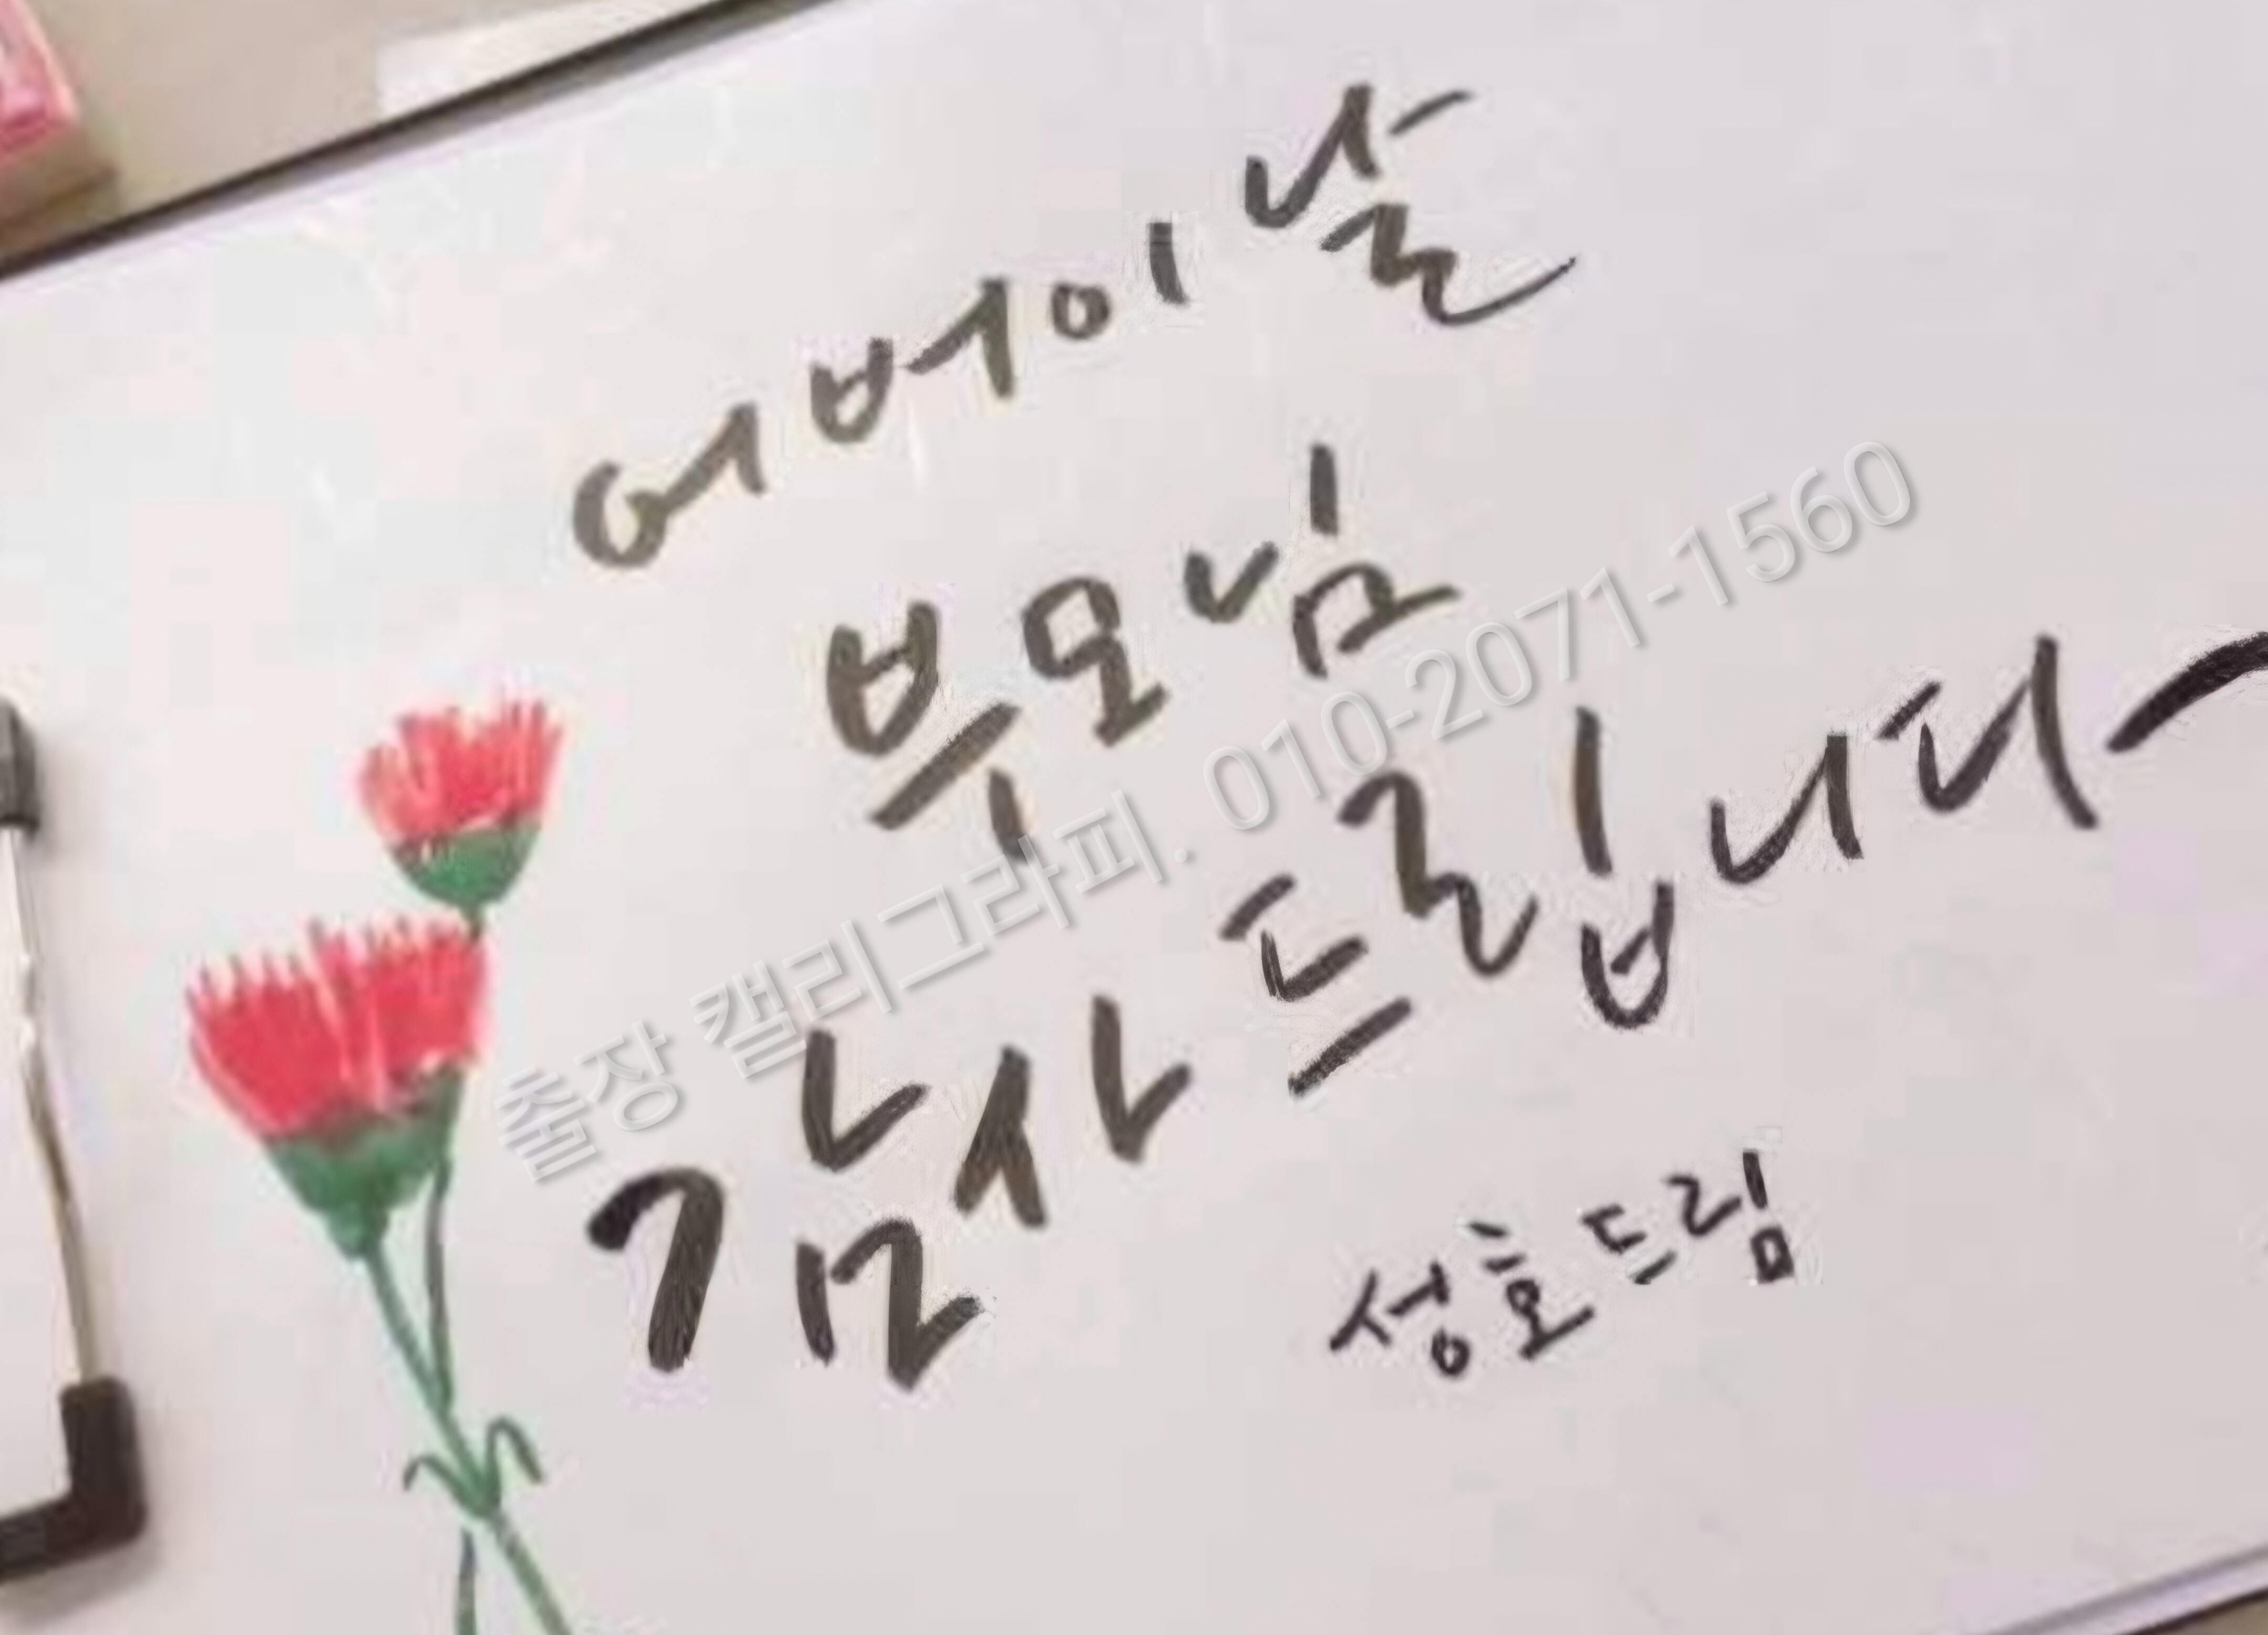 어버이날
부모님
감사드립니다~
성호드림
출장 캘리그라피. 010-2071-1560